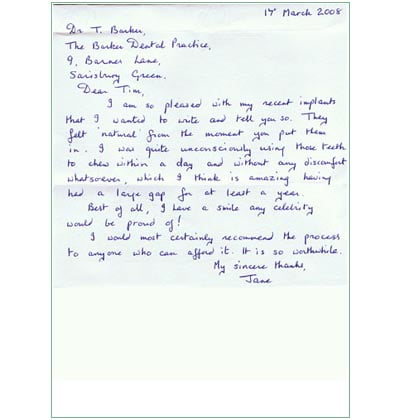 17th March 2008
Dr T. Barker,
The Barker Dental Practice,
9, Barnes Lane,
Sarisbury Green.
Dear Tim,
I am so pleased with my recent implants
that I wanted to write and tell you so. They
felt 'natural' from the moment you put them
in. I was quite unconsciously using those teeth
to chew within a day and without any discomfort
whatsoever, which I think is amazing having
had a large gap for at least a year.
Best of all, I have a smile any celebrity
would be proud of!
I would most certainly recommend the process
to anyone who can afford it. It is so worthwhile.
My sincere thanks,
Jane